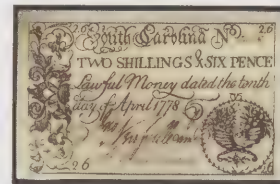 26 South Carolina No. 26
TWO SHILLINGS & SIX PENCE
Lawful Money dated the tenth
day of April 1778
26